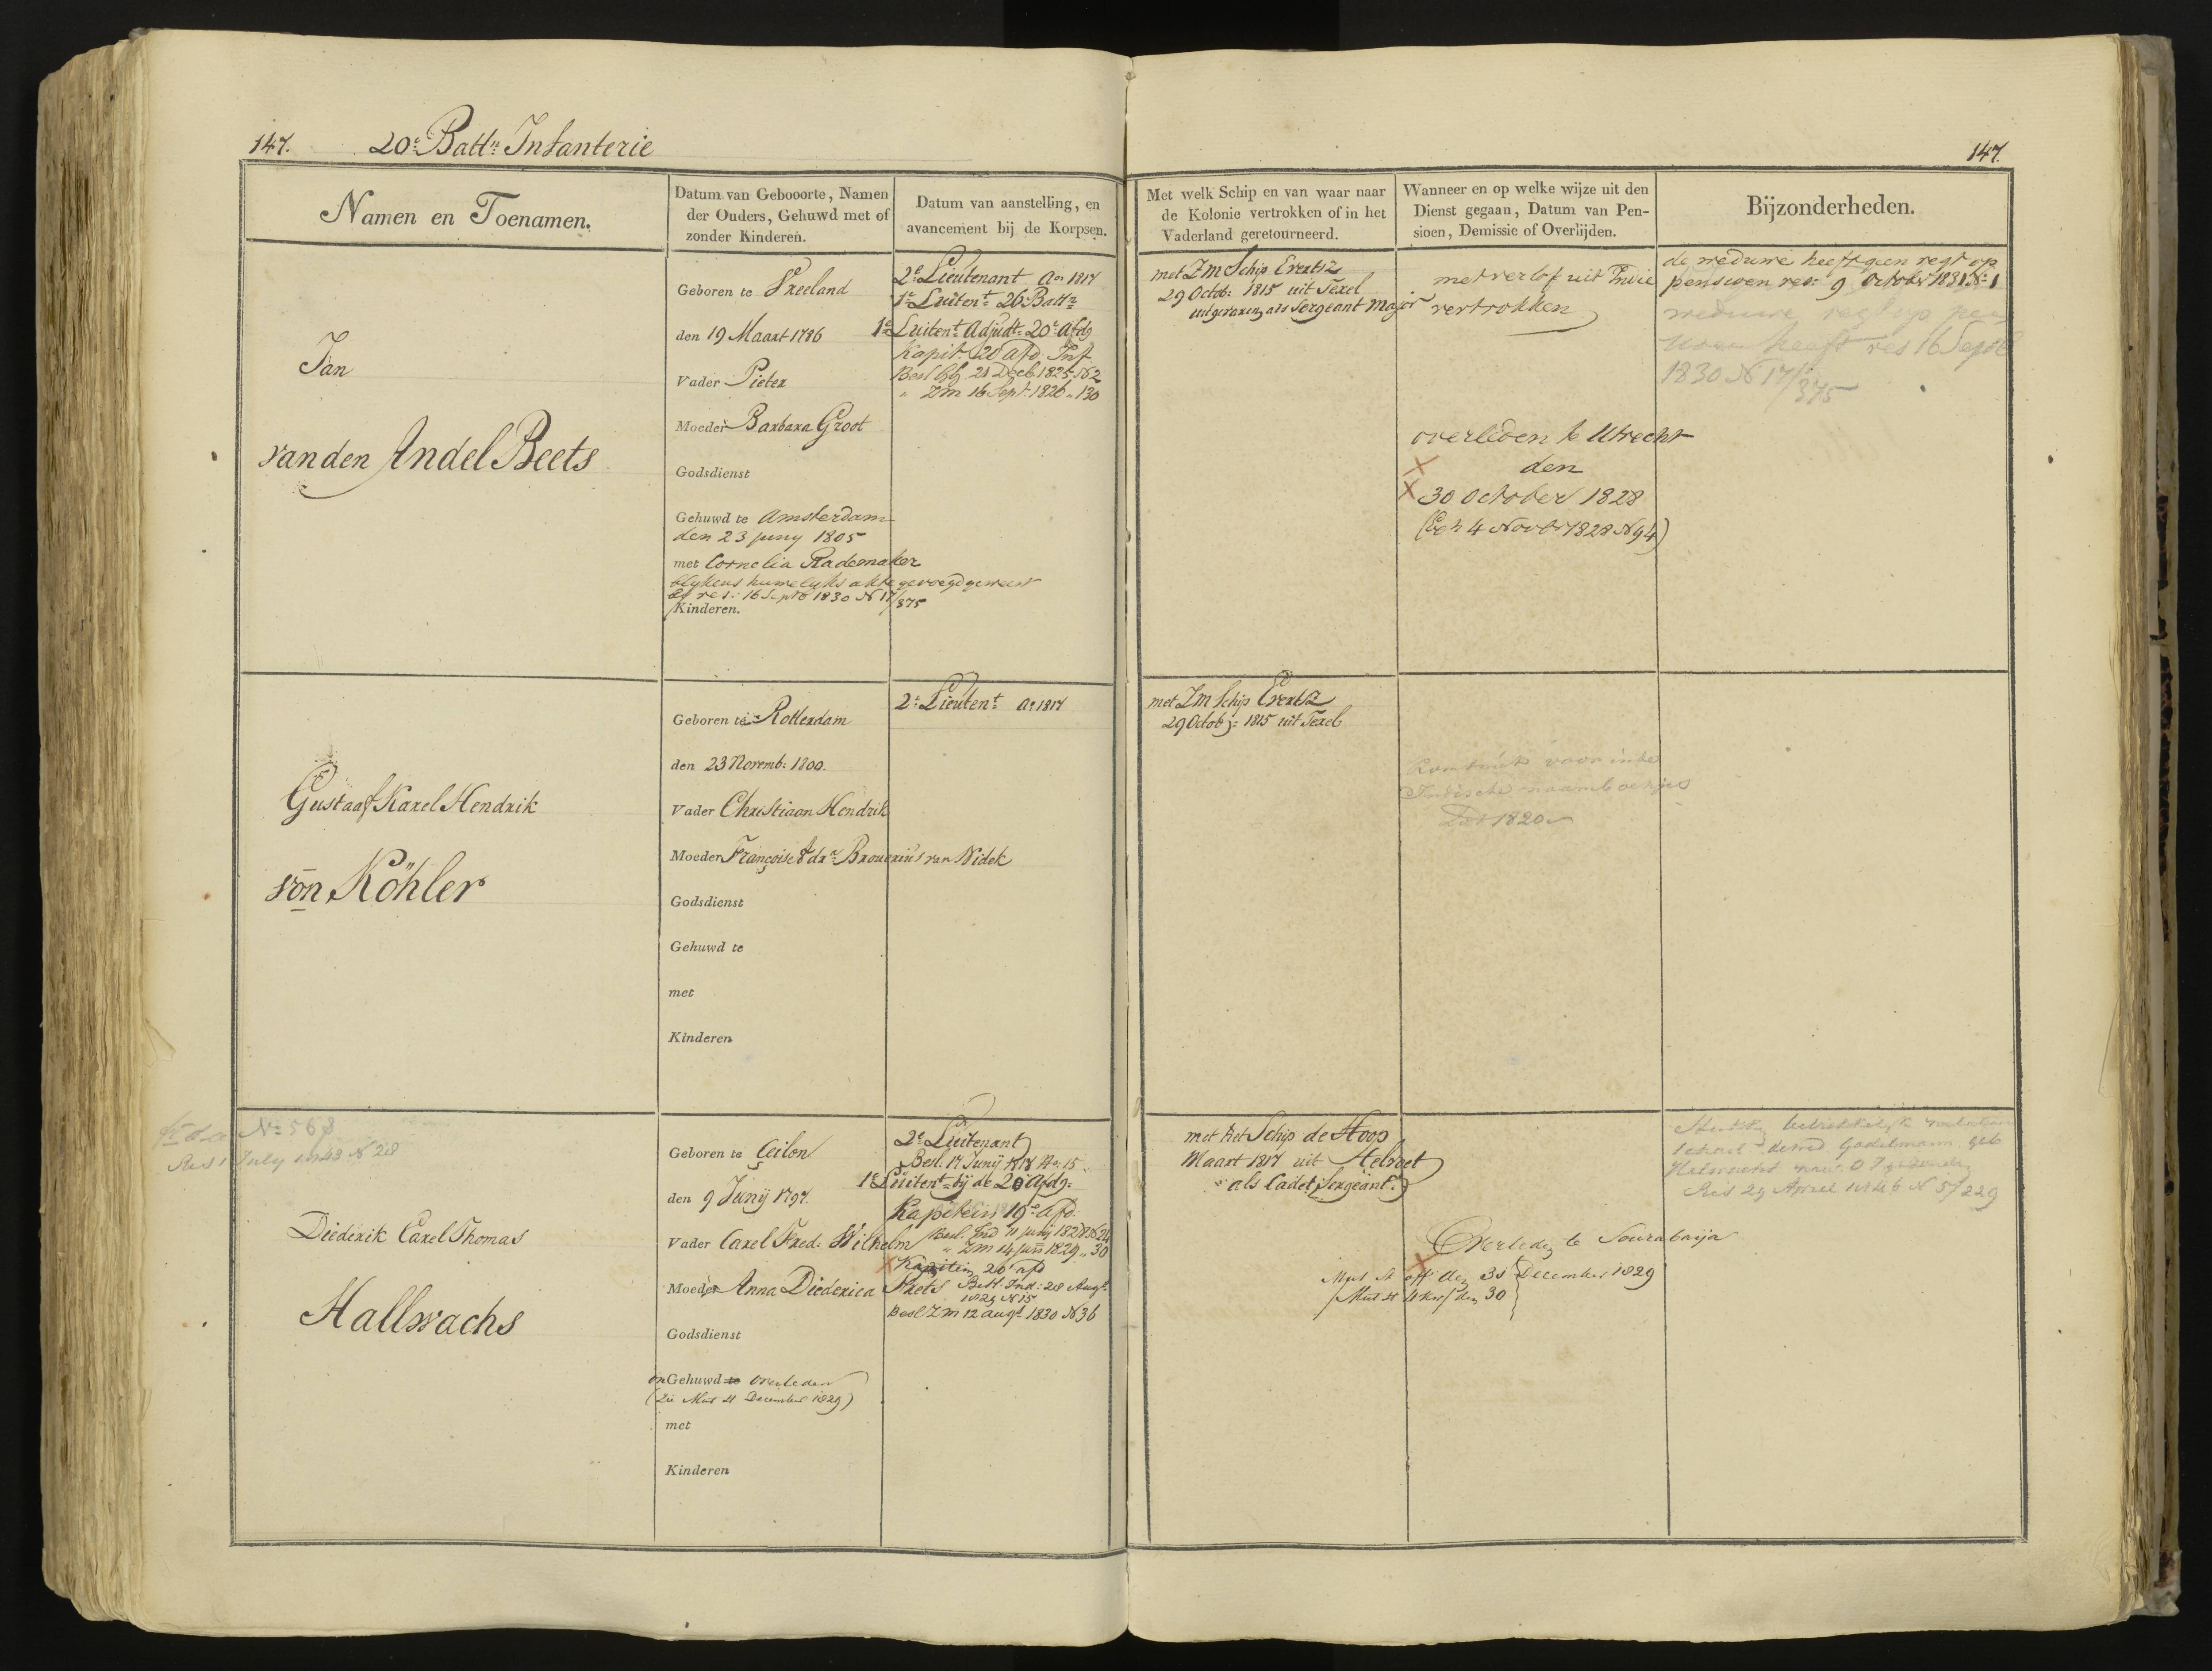 147.
20e Battn Infanterie
147.
Namen en Toenamen.
Datum van Gebooorte, Namen
der Ouders, Gehuwd met of
zonder Kinderen.
Datum van aanstelling, en
avancement bij de Korpsen.
Met welk Schip en van waar naar
de Kolonie vertrokken of in het
Vaderland geretourneerd.
Wanneer en op welke wijze uit den
Dienst gegaan, Datum van Pen-
sioen, Demissie of Overlijden.
Bijzonderheden.
Jan
van den Andel Beets
Geboren te Vreeland
den 19 Maart 1786
Vader Pieter
Moeder Barbara Groot
Godsdienst
Gehuwd te Amsterdam
den 23 juny 1805
met Cornelia Rademaker
blykens huwelyks akte gevoegd geweest
res: 16 Septb 1830 N 17/375
Kinderen.
2e Lieutenant Ao 1817
1e Luitent 26 Battn
1e Luitent Adjudt 20e Afdg
Kapit: 20 afd. Inf
Besl 21 Decb 1825 N 2
" ZM 16 Sept: 1826 " 130
met Zm Schip Evertsz
29 Octob: 1815 uit Texel
uitgevaren als Sergeant Major
met verlof uit Indie
vertrokken
overleden te Utrecht
den
30 October 1828
4 Novbr 1828 N 94)
de weduwe heeft geen regt op
pensioen res: 9 October 1831 N 1
weduwe regt op pen
heeft res 16 Septb
1830 N 17/375
Gustaaf Karel Hendrik
von Köhler
Geboren te Rotterdam
den 23 Novemb: 1800.
Vader Christiaan Hendrik
Moeder Françoise Adra Brouerius van Nidek
Godsdienst
Gehuwd te
met
Kinderen
2e Lieutent Ao 1817
met Zm Schip Evertsz
29 Octob: 1815 uit Texel
Komt niet voor in de
Indische naamboekjes
1820
No 568
Res 1 July 1843 N 28
Diederik Carel Thomas
Hallwachs
Geboren te Ceilon
den 9 Junij 1797.
Vader Carel Fred. Wilhelm
Moeder Anna Diederica Frets
Godsdienst
onGehuwd te overleden
(Zie Mut st December 1829)
met
Kinderen
2e Luitenant
Besl. 17 Junij 1818 No 15
1e Luitent bij de 20 Afdg:
Kapitein 19e Afd.
Besl. Ind 11 juny 1828 N 24
" ZM 14 juni 1829 " 30
Kapitein 20 afd
Besl Ind: 28 Augt
1829 N 15
Besl ZM 12 Augt 1830 N 36
met het Schip de Hoop
Maart 1817 uit Helvoet
als Cadet Sergeant.
Overleden te Sourabaija
Mut st off den 31 December 1829
Mut st den 30
betrekkelyk
Res 29 April 1846 N 5/229